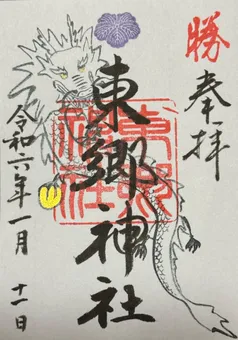 勝
奉拝
東郷神社
東郷神社
令和六年一月
十一日